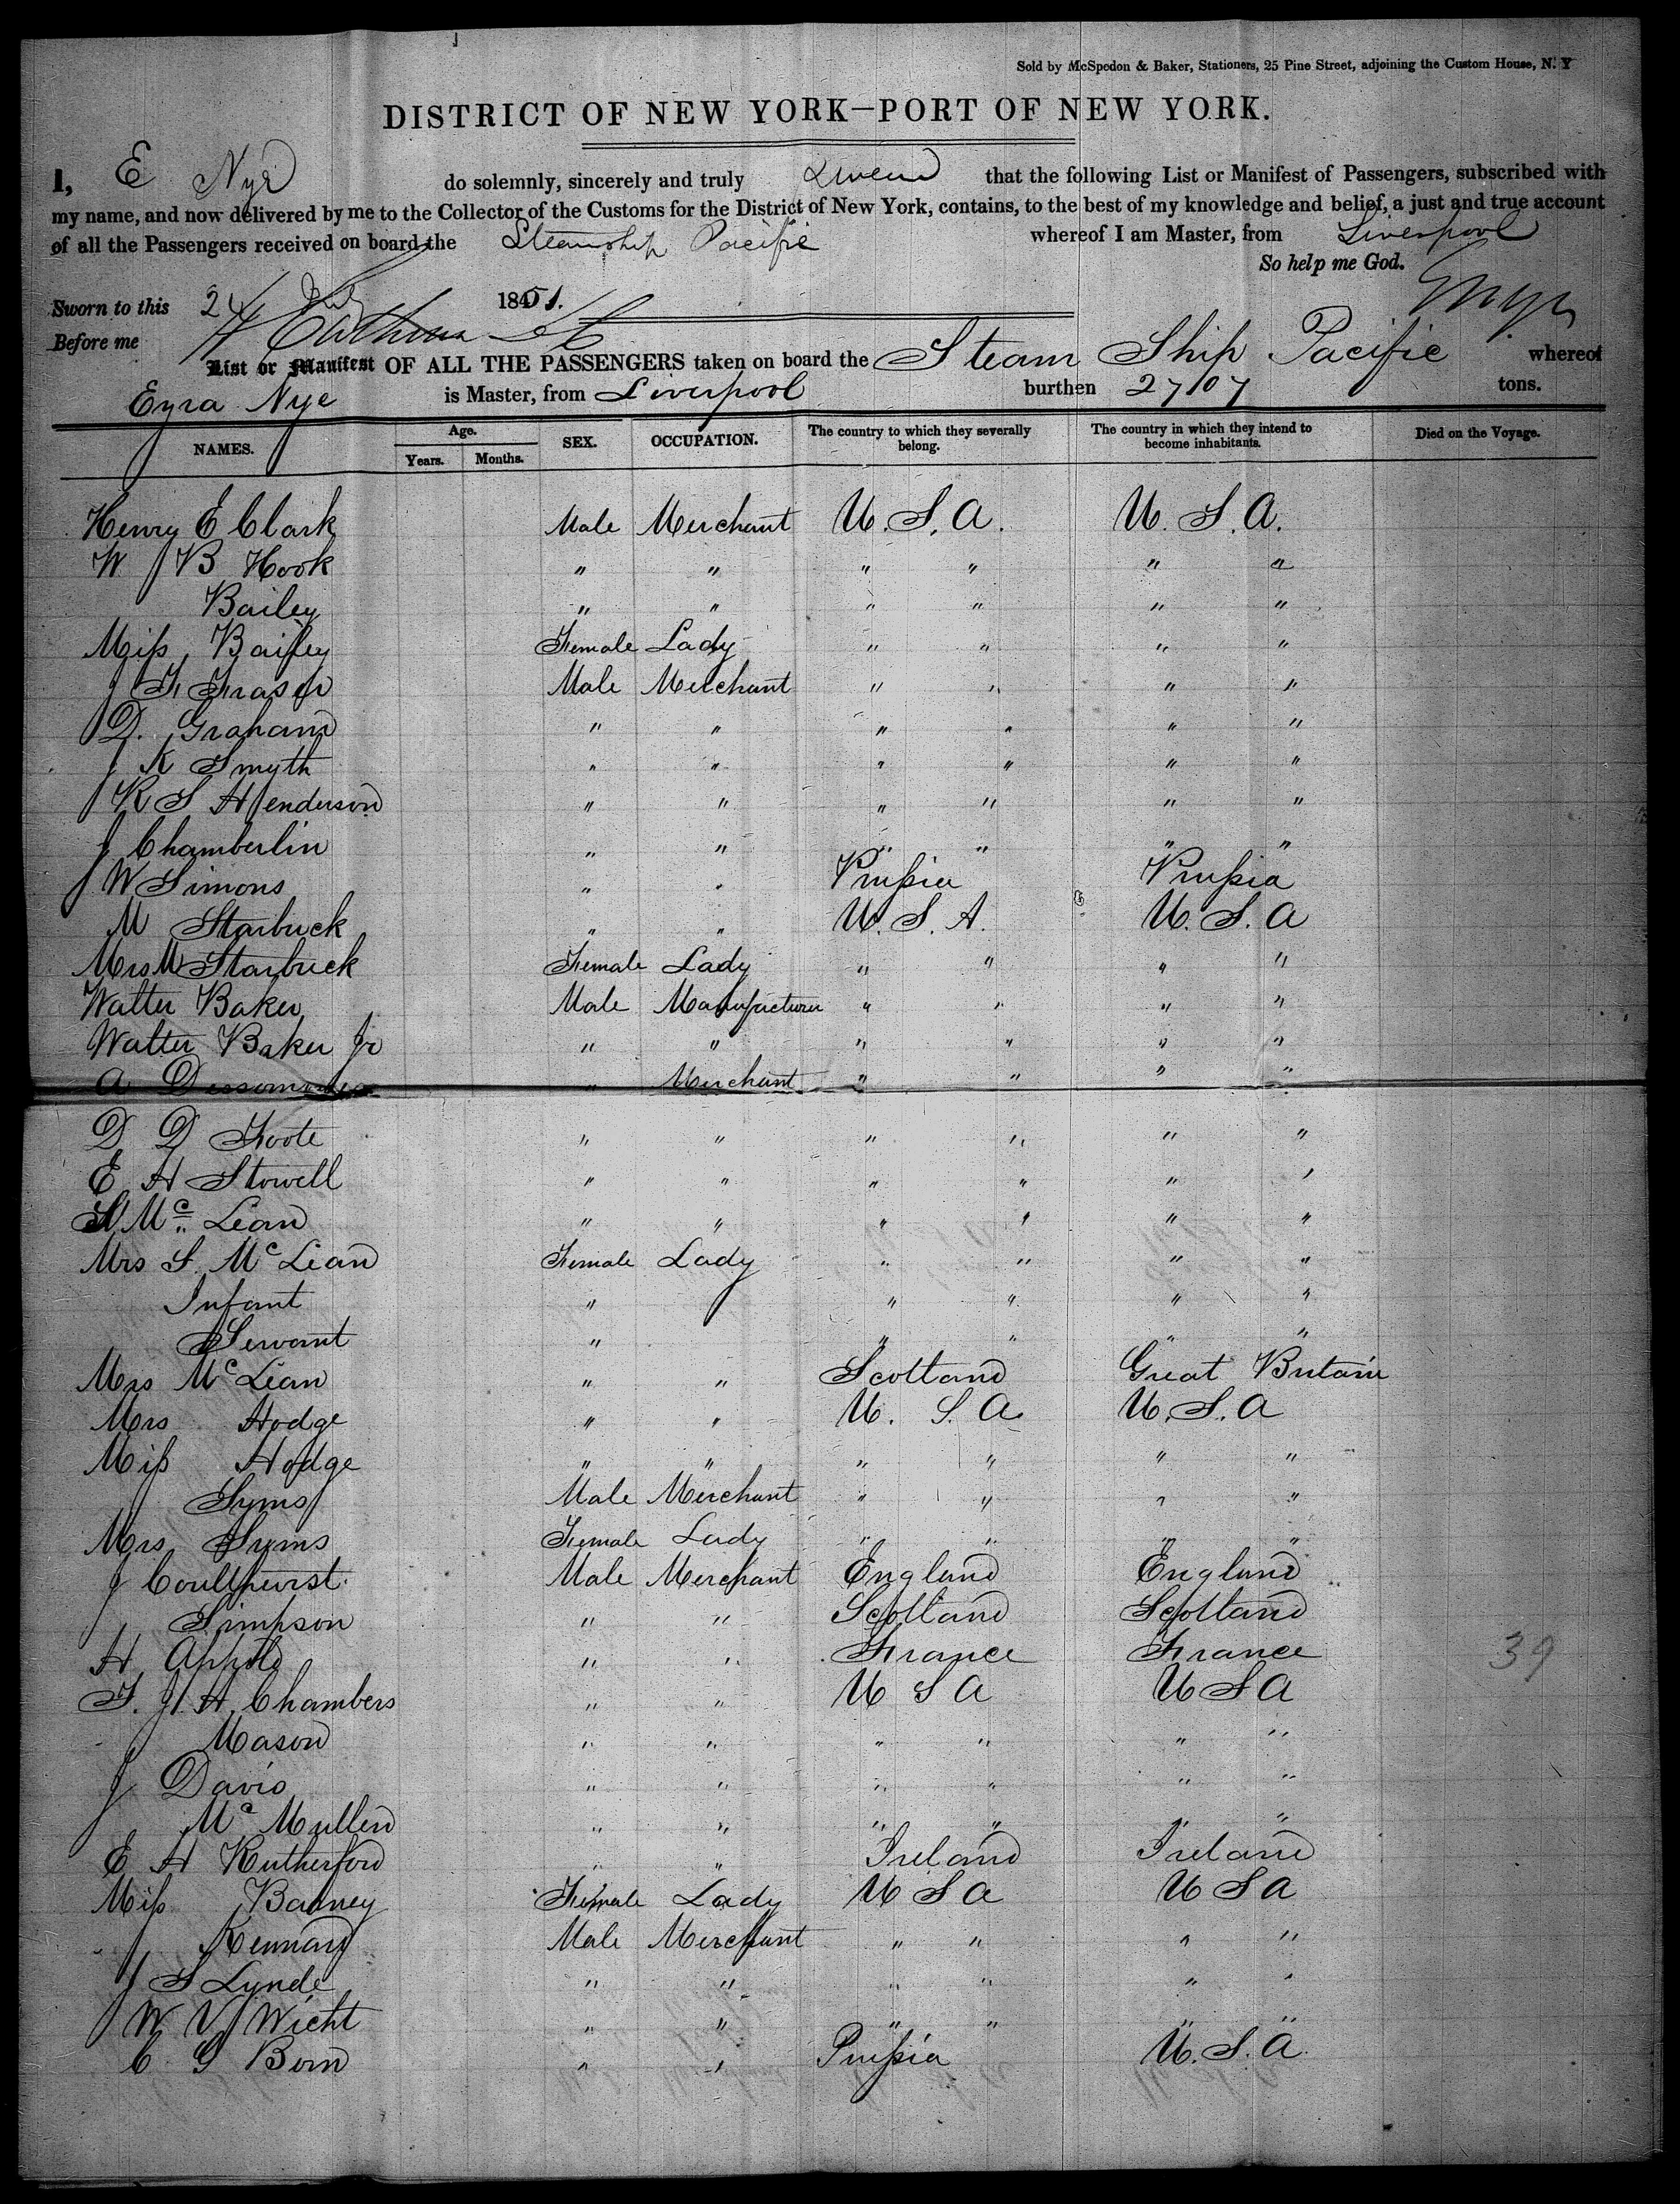 Sold by McSpedon & Baker, Stationers, 25 Pine Street, adjoining the Custom House, N. Y
DISTRICT OF NEW YORK—PORT OF NEW YORK.
I, E Nye do solemnly, sincerely and truly swear that the following List or Manifest of Passengers, subscribed with
my name, and now delivered by me to the Collector of the Customs for the District of New York, contains, to the best of my knowledge and belief, a just and true account
of all the Passengers received on board the Steamship Pacific whereof I am Master, from Liverpool
So help me God.
Sworn to this 24 July 1851. E Nye
Before me
List or Manifest OF ALL THE PASSENGERS taken on board the Steam Ship Pacific whereof
Ezra Nye is Master, from Liverpool burthen 2707 tons.
NAMES. Age. Years. Months. SEX. OCCUPATION. The country to which they severally belong. The country in which they intend to become inhabitants. Died on the Voyage.
Henry E Clark Male Merchant U.S.A. U.S.A.
W B Hook " " " " " "
Bailey " " " " " "
Miss Bailey Female Lady " " " "
J F Fraser Male Merchant " " " "
D. Graham " " " " " "
J K Smyth " " " " " "
R S Henderson " " " " " "
J Chamberlin " " " " " "
W Simons " " Prussia Prussia
M Starbuck " " U.S.A. U.S.A
Mrs M Starbuck Female Lady " " " "
Walter Baker Male Manufacturer " " " "
Walter Baker Jr " " " " " "
A " Merchant " " " "
D D Foote " " " " " "
E H Stowell " " " " " "
S Mc Lean " " " " " "
Mrs S. Mc Lean Female Lady " " " "
Infant " " " " "
Servant " " " " "
Mrs Mc Lean " " Scotland Great Britain
Mrs Hodge " " U. S. A. U.S.A
Miss Hodge " " " " " "
Syms Male Merchant " " " "
Mrs Syms Female Lady " " " "
J Coulthurst Male Merchant England England
Simpson " " Scotland Scotland
H " " France France
T. J. A. Chambers " " U S A U S A
Mason " " " " " "
J Davis " " " " " "
Mc Mullen " " " " " "
E H Rutherford " " Ireland Ireland
Miss Barney Female Lady U S A U S A
Kennard Male Merchant " " " "
J S Lynde " " " " " "
W V Wicht " " " " " "
C G Born " " Prussia U.S.A.
39